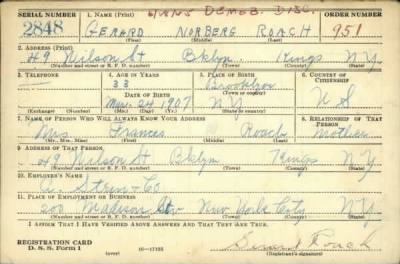 SERIAL NUMBER 1. NAME (Print) DEMOB. DISC. ORDER NUMBER
2848 GERARD NORBERG ROACH 951
(First) (Middle) (Last)
2. ADDRESS (Print)
49 Wilson St Bklyn Kings NY
(Number and street or R. F. D. number) (Town) (County) (State)
3. TELEPHONE 4. AGE IN YEARS 5. PLACE OF BIRTH 6. COUNTRY OF CITIZENSHIP
33 Brooklyn
DATE OF BIRTH (Town or county)
Mar. 24 1907 NY U S
(Exchange) (Number) (Mo.) (Day) (Yr.) (State or country)
7. NAME OF PERSON WHO WILL ALWAYS KNOW YOUR ADDRESS 8. RELATIONSHIP OF THAT PERSON
Mrs Frances Roach Mother
(Mr., Mrs., Miss) (First) (Middle) (Last)
9. ADDRESS OF THAT PERSON
49 Wilson St Bklyn Kings N Y
(Number and street or R. F. D. number) (Town) (County) (State)
10. EMPLOYER'S NAME
A. Stein & Co.
11. PLACE OF EMPLOYMENT OR BUSINESS
200 Madison Ave New York City NY
(Number and street or R. F. D. number) (Town) (County) (State)
I AFFIRM THAT I HAVE VERIFIED ABOVE ANSWERS AND THAT THEY ARE TRUE.
REGISTRATION CARD
D. S. S. Form 1 (over) 16—17105 Gerard Roach
(Registrant's signature)